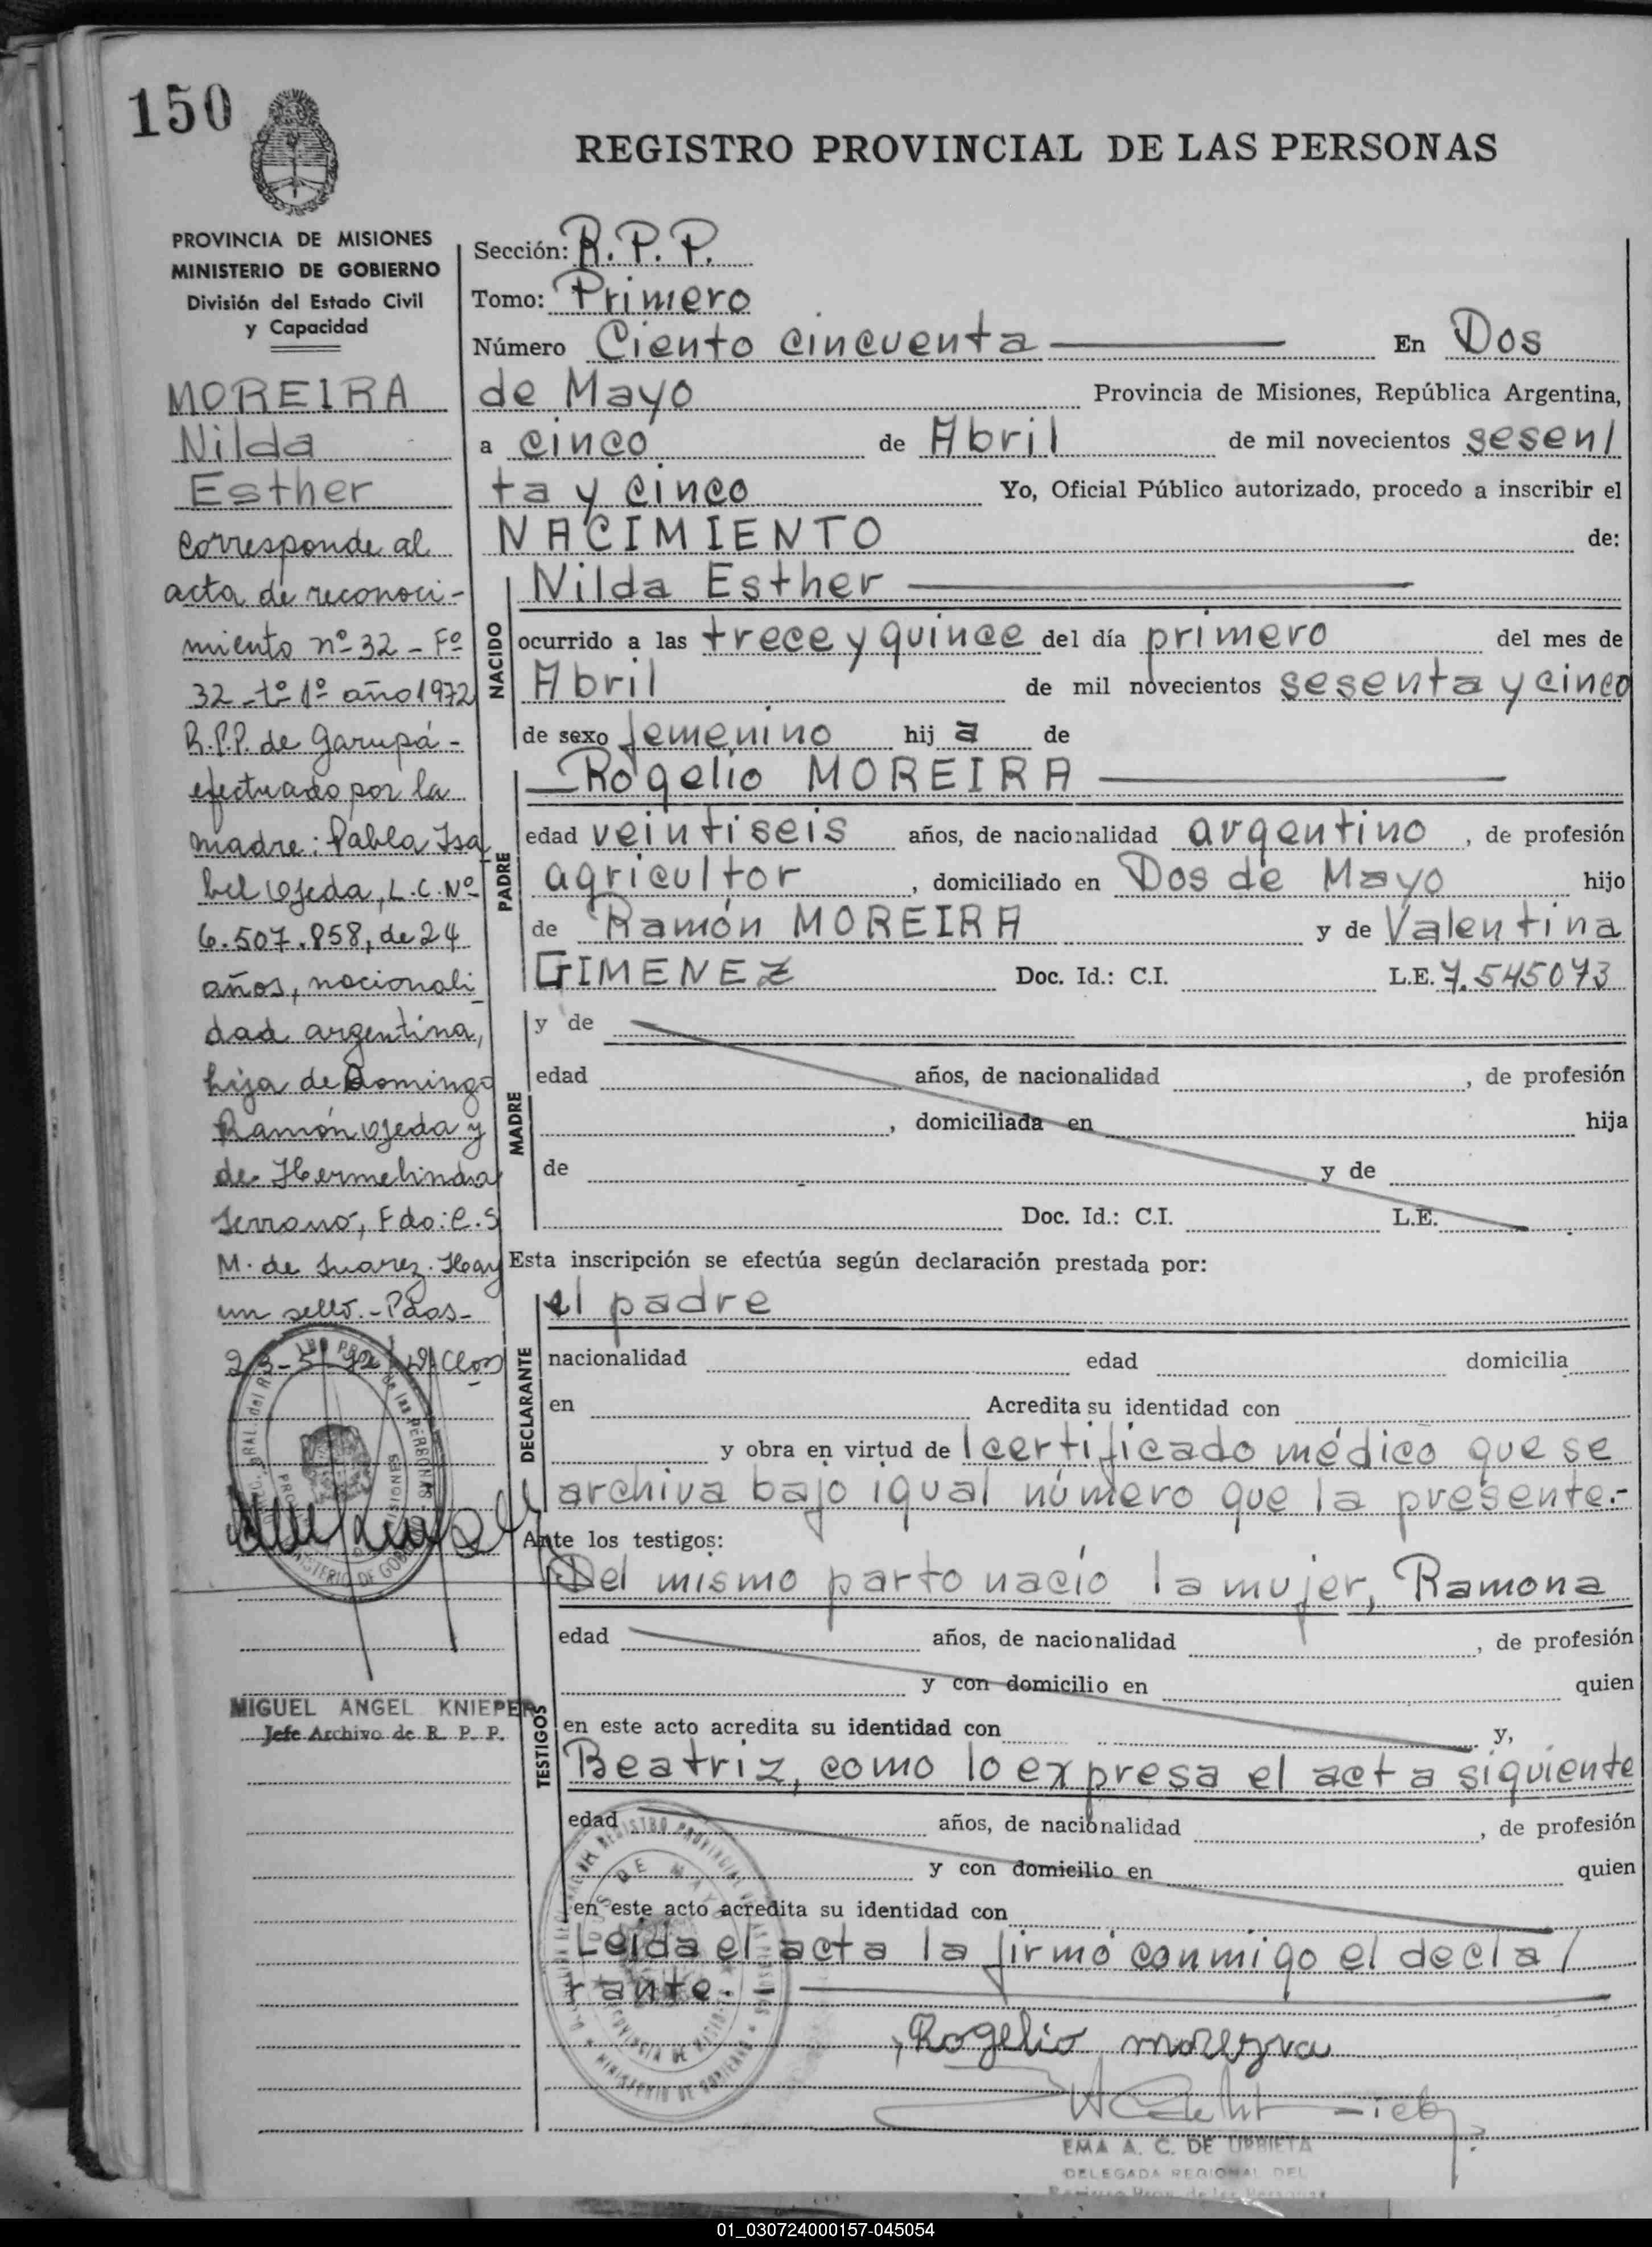 150
REGISTRO PROVINCIAL DE LAS PERSONAS
PROVINCIA DE MISIONES
MINISTERIO DE GOBIERNO
División del Estado Civil
y Capacidad
MOREIRA
Nilda
Esther
Corresponde al
acta de reconoci-
miento nº 32 - Fº
32 - tº 1º año 1972
R.P.P. de Garupá -
efectuado por la
madre: Pabla Isa
bel Ojeda, L.C. Nº
6.507.858, de 24
años, nacionali
dad argentina,
hija de Domingo
Ramón Ojeda y
de Hermelinda
Serrano, Fdo: C. S
M. de Suarez. Hay
un sello. - Pdas-
23-5-72
MIGUEL ANGEL KNIEPER
Jefe Archivo de R. P. P.
Sección: R. P. P.
Tomo: Primero
Número Ciento cincuenta En Dos
de Mayo Provincia de Misiones, República Argentina,
a cinco de Abril de mil novecientos sesen/
ta y cinco Yo, Oficial Público autorizado, procedo a inscribir el
NACIMIENTO de:
NACIDO
Nilda Esther
ocurrido a las trece y quince del día primero del mes de
Abril de mil novecientos sesenta y cinco
de sexo femenino hij a de
PADRE
Rogelio MOREIRA
edad veintiseis años, de nacionalidad argentino, de profesión
agricultor, domiciliado en Dos de Mayo hijo
de Ramón MOREIRA y de Valentina
GIMENEZ Doc. Id.: C.I. L.E. 7.545073
MADRE
y de
edad años, de nacionalidad , de profesión
, domiciliada en hija
de y de
Doc. Id.: C.I. L.E.
Esta inscripción se efectúa según declaración prestada por:
DECLARANTE
el padre
nacionalidad edad domicilia
en Acredita su identidad con
y obra en virtud de l certificado médico que se
archiva bajo igual número que la presente.-
Ante los testigos:
TESTIGOS
Del mismo parto nació la mujer, Ramona
edad años, de nacionalidad , de profesión
y con domicilio en quien
en este acto acredita su identidad con y,
Beatriz, como lo expresa el acta siguiente
edad años, de nacionalidad , de profesión
y con domicilio en quien
en este acto acredita su identidad con
Leída el acta la firmó conmigo el decla/
rante.-
Rogelio moreyra
EMA A. C. DE URRIETA
DELEGADA REGIONAL DEL
01_030724000157-045054